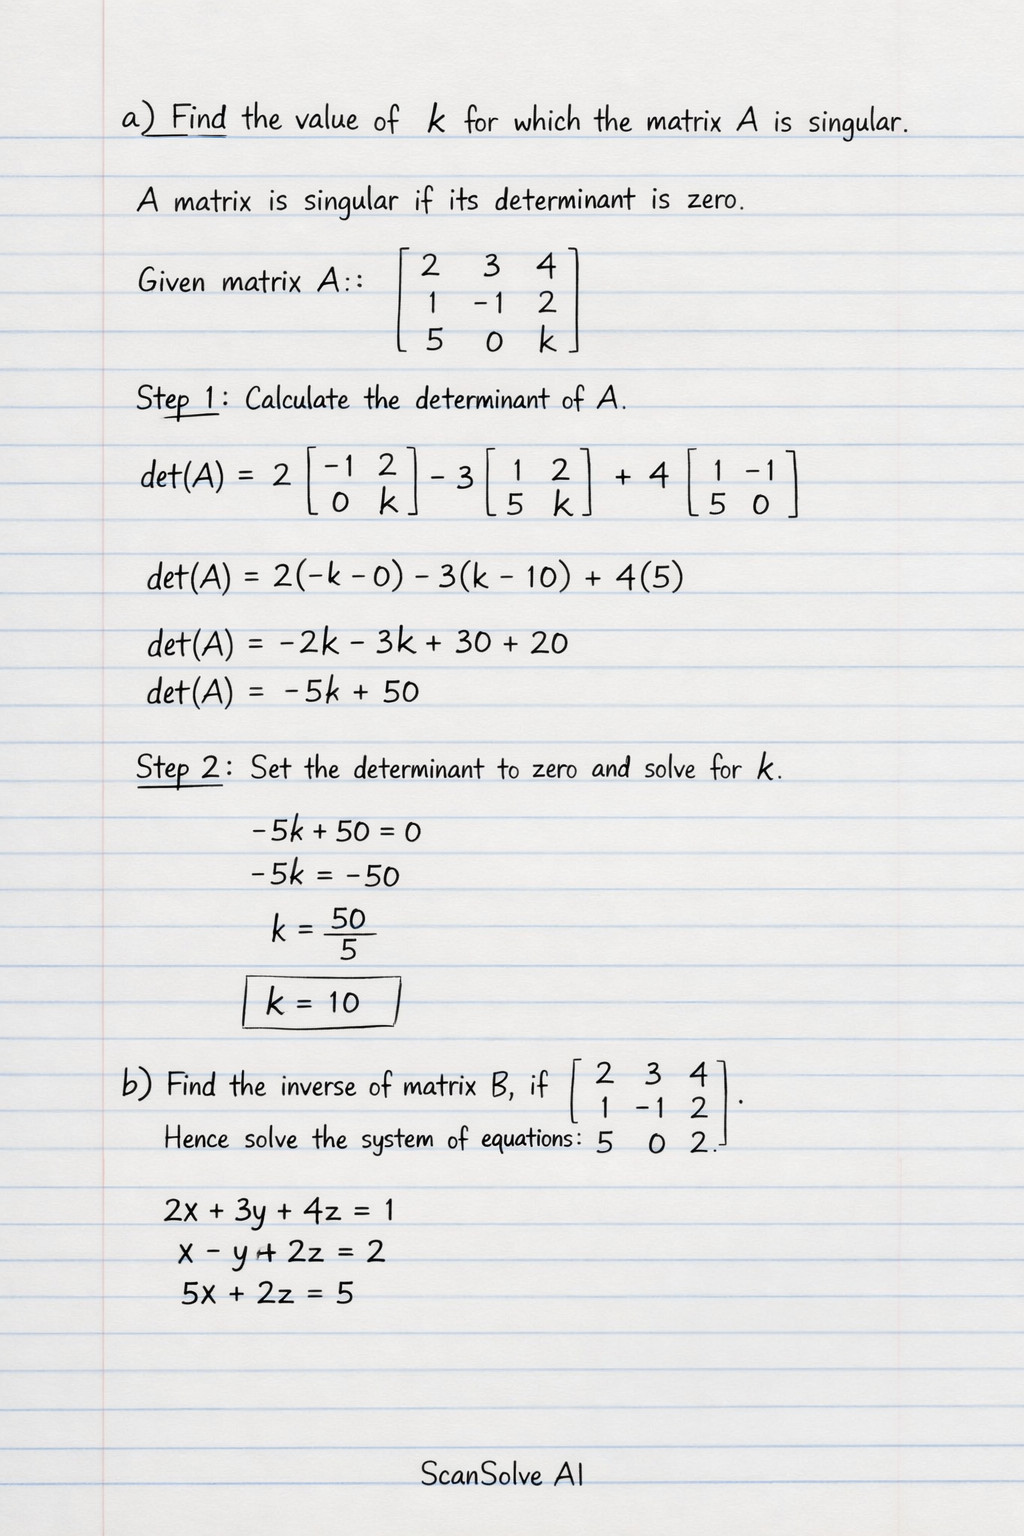 a) Find the value of k for which the matrix A is singular.
A matrix is singular if its determinant is zero.
Given matrix A:: [2 3 4
1 -1 2
5 0 k]
Step 1: Calculate the determinant of A.
det(A) = 2 [-1 2; 0 k] - 3 [1 2; 5 k] + 4 [1 -1; 5 0]
det(A) = 2(-k - 0) - 3(k - 10) + 4(5)
det(A) = -2k - 3k + 30 + 20
det(A) = -5k + 50
Step 2: Set the determinant to zero and solve for k.
-5k + 50 = 0
-5k = -50
k = 50/5
k = 10
b) Find the inverse of matrix B, if [2 3 4
1 -1 2
Hence solve the system of equations: 5 0 2.].
2x + 3y + 4z = 1
x - y + 2z = 2
5x + 2z = 5
ScanSolve AI